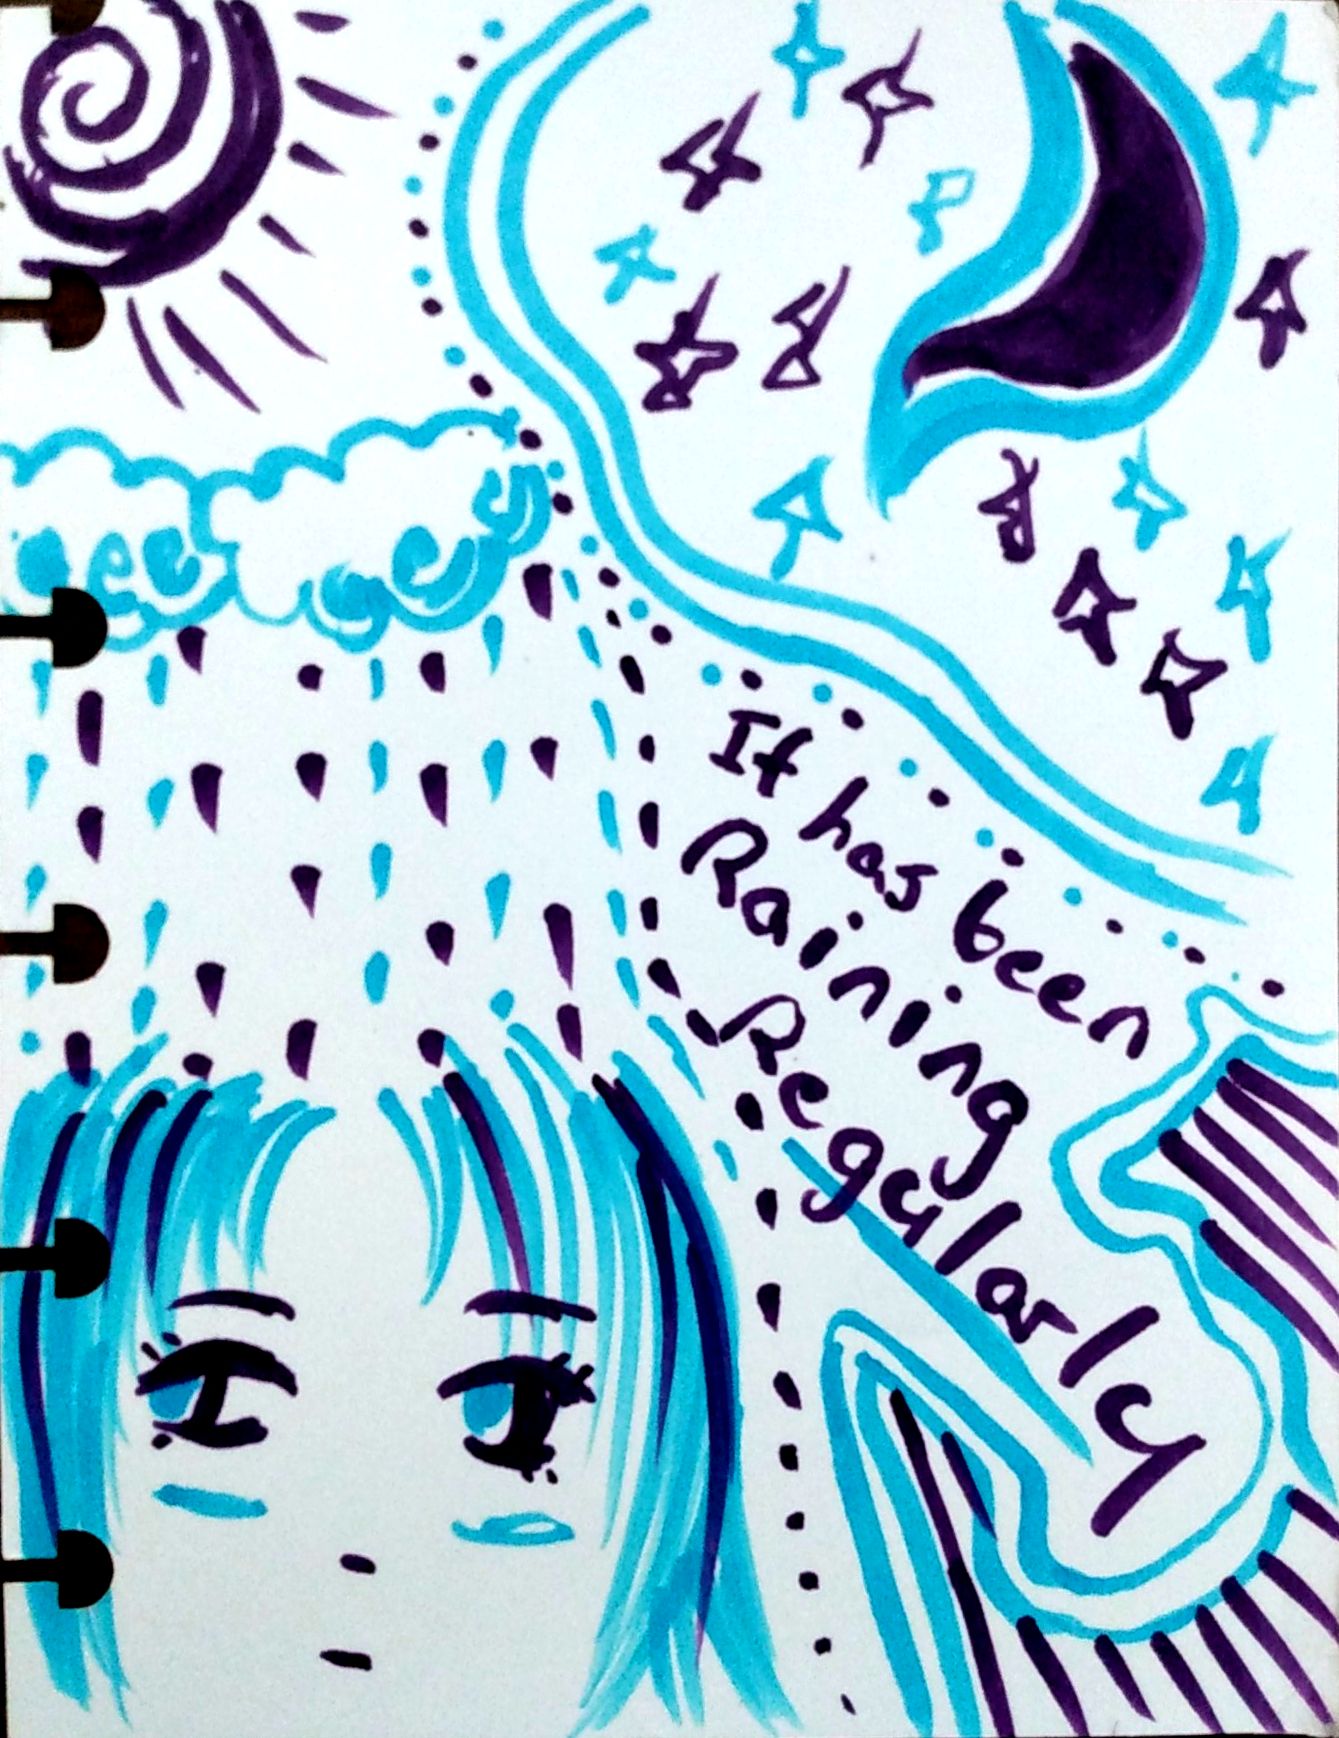 It has been
Raining
Regularly